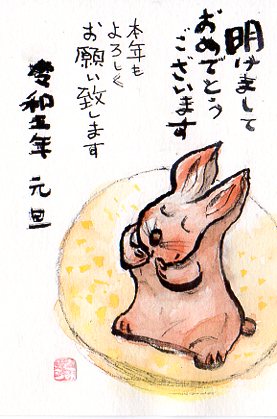 明けまして
おめでとう
ございます
本年も
よろしく
お願い致します
令和五年 元旦